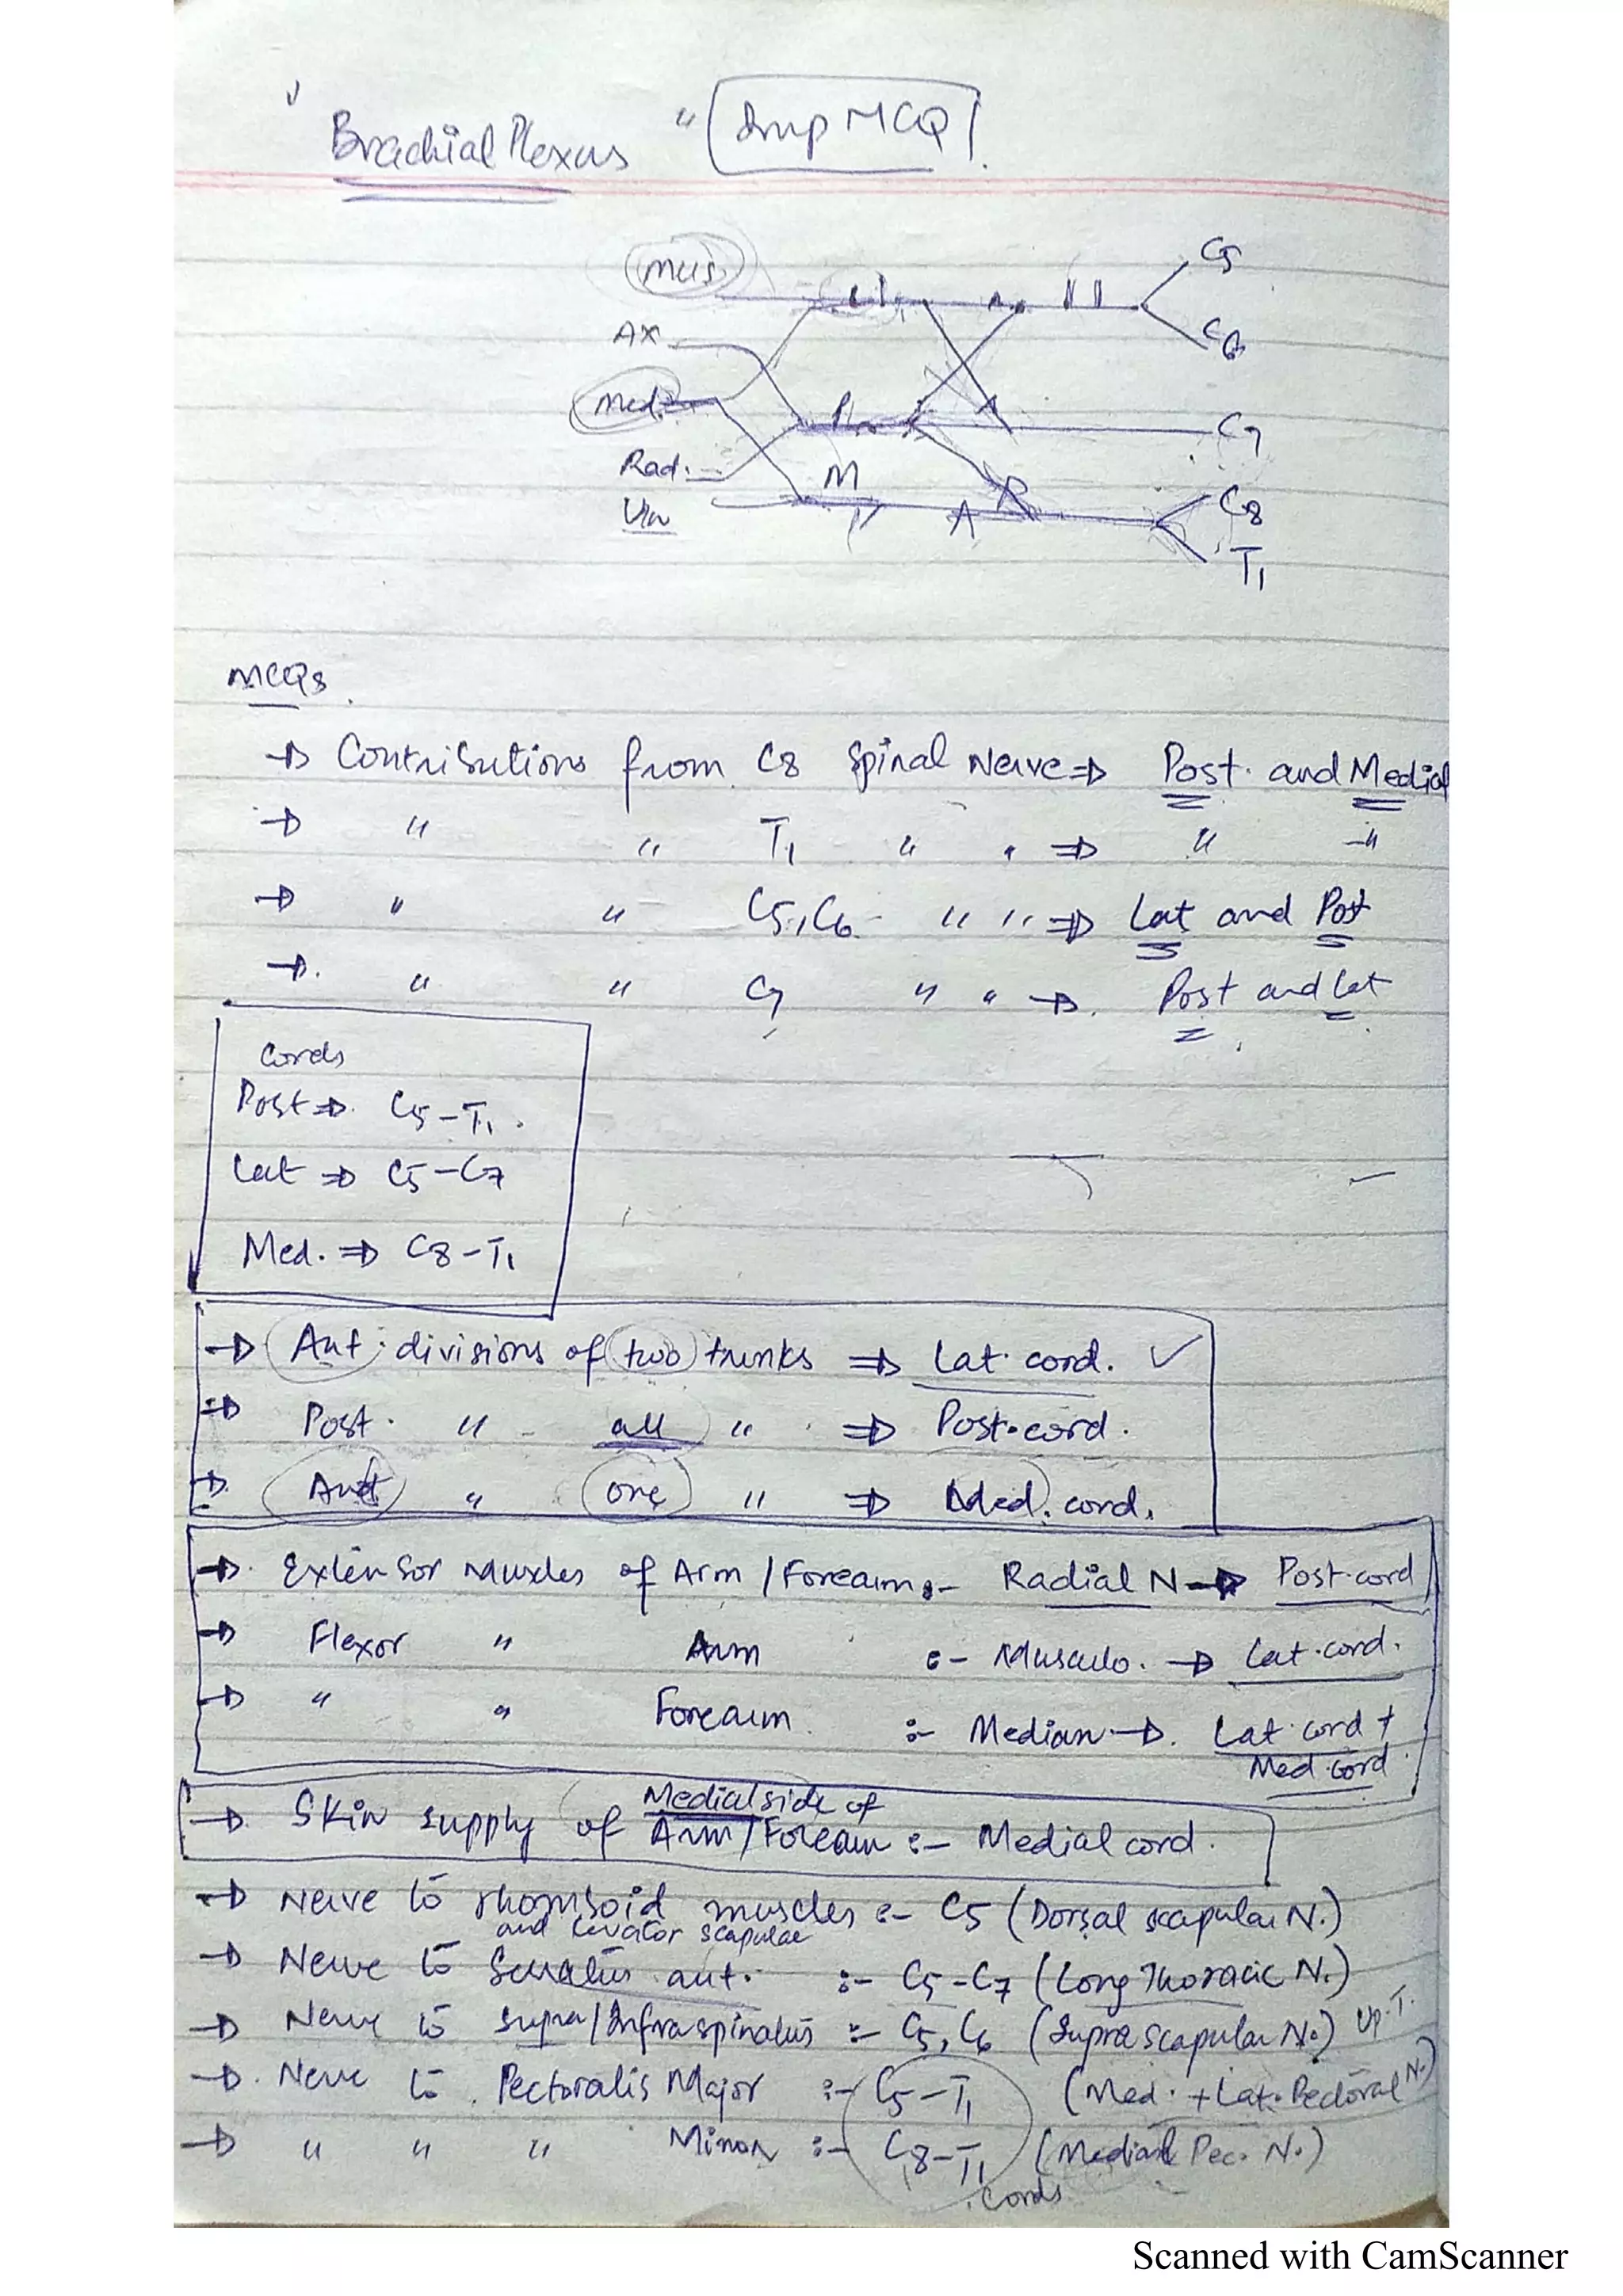 " Brachial Plexus " Imp MCQ
Mus.
C5
Ax
C6
Med.
P
A
C7
Rad.
M
P
C8
Uln
A
T1
MCQs
→ Contributions from C8 Spinal Nerve ⇒ Post. and Medial
→ " " T1 " " ⇒ " "
→ " " C5, C6 " " ⇒ Lat and Post
→ " " C7 " " → Post and Lat
Cords
Post ⇒ C5-T1.
Lat ⇒ C5-C7
Med. ⇒ C8-T1
→ Ant. divisions of two trunks ⇒ Lat. cord. ✓
⇒ Post. " all " ⇒ Post. cord.
⇒ Ant " one " ⇒ Med. cord.
→ Extensor Muscles of Arm / Forearm :- Radial N → Post. cord
→ Flexor " Arm :- Musculo. → Lat. cord.
→ " " Forearm :- Median → Lat. cord +
Med. cord.
→ Skin supply of Medial side of Arm / Forearm :- Medial cord.
→ Nerve to rhomboid muscles :- C5 (Dorsal scapular N.)
and Levator scapulae
→ Nerve to Serratus ant. :- C5-C7 (Long Thoracic N.)
→ Nerve to supra/Infraspinatus :- C5, C6 (Suprascapular N.) Up.T.
→ Nerve to Pectoralis Major :- C5-T1 (Med. + Lat. Pectoral N.)
→ " " " Minor :- C8-T1 (Medial Pec. N.)
cords
Scanned with CamScanner